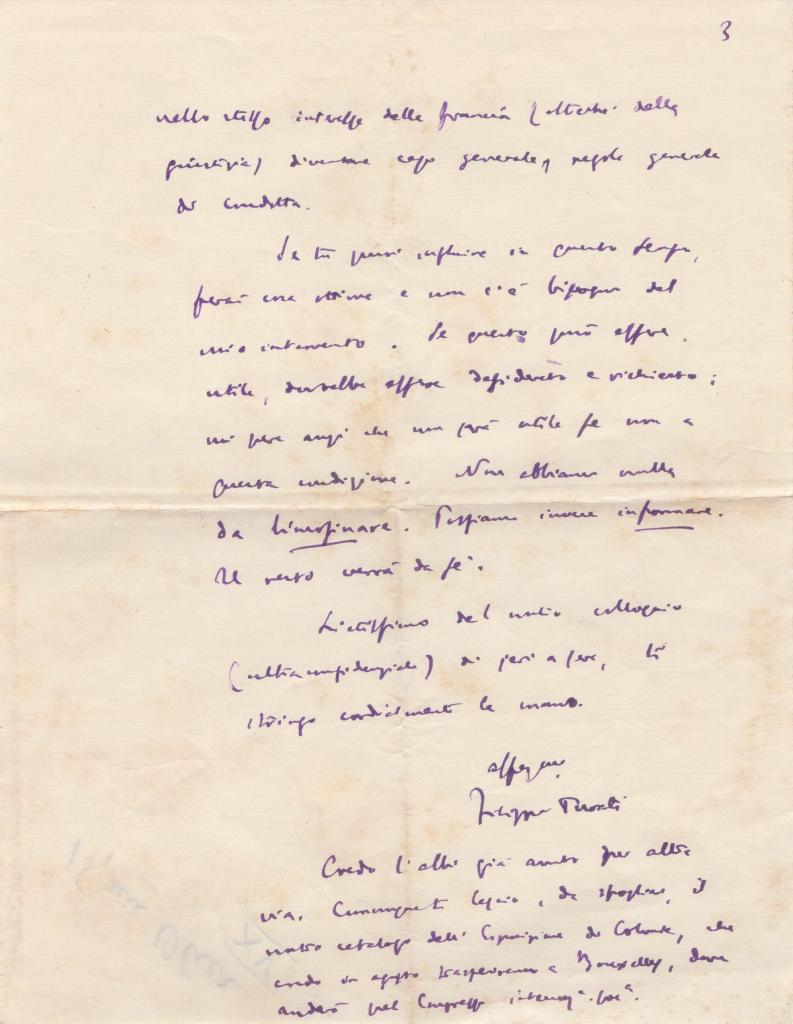 3
nello stesso interesse della Francia (oltreché della
giustizia) divenisse caso generale, regola generale
di condotta.
Se tu puoi influire in questo senso,
farai cosa ottima e non c'è bisogno del
mio intervento. Se questo può essere
utile, dovrebbe essere desiderato e richiesto;
mi pare anzi che non sarà utile se non a
questa condizione. Non abbiamo nulla
da limosinare. Possiamo invece informare.
Il resto verrà da sé.
Lietissimo del nostro colloquio
(ultraconfidenziale) di jeri a sera, ti
stringo cordialmente la mano.
affezmo
Filippo Turati
Credo l'abbi già avuto per altra
via. Comunque ti lascio, da sfogliare, il
nostro catalogo dell'Esposizione di Colonia, che
credo in agosto trasporteremo a Bruxelles, dove
andrò pel Congresso internaz. soc.